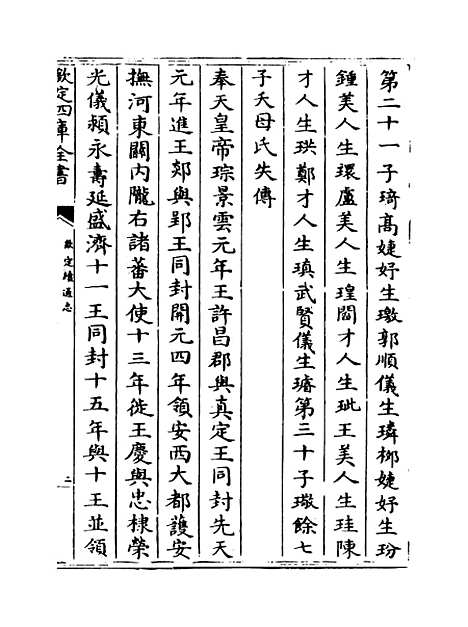 第二十一子琦髙婕妤生璬郭順儀生璘栁婕妤生玢
鍾美人生環盧美人生瑝閻才人生玼王美人生珪陳
才人生珙鄭才人生瑱武賢儀生璿第三十子璥餘七
子夭母氏失傳
奉天皇帝琮景雲元年王許昌郡與真定王同封先天
元年進王郯與郢王同封開元四年領安西大都護安
撫河東闗内隴右諸蕃大使十三年徙王慶與忠棣榮
光儀潁永壽延盛濟十一王同封十五年與十王並領
欽定四庫全書
欽定續通志
二